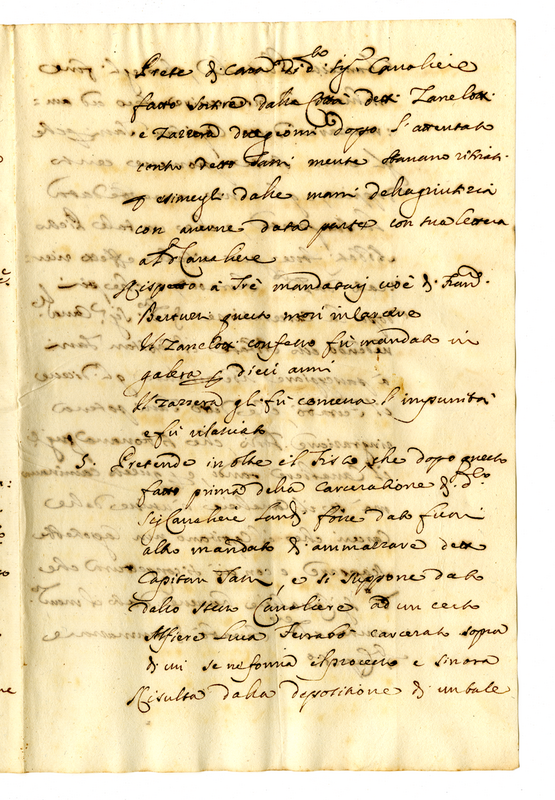 Prete di casa di d.to Sig.r Cavaliere
fatto sortire dalla Città detti Zanelotti
e Zazzera due giorni doppo l'attentato
contro detto Tassi mentre stavano ritirati
p esimergli dalle mani della giustitia
con averne data parte con sua lettera
al Sr Cavaliere
Rispetto a Trè mandatarij cioè di Fran.
questo morì in carcere
Il Zanelotti confesso fù mandato in
galera p dieci anni
Il Zazzera gli fù concessa l'impunità
e fù rilasciato
5. Pretende in oltre il Fisco, che dopo questo
fatto prima della carceratione di d.to
Sig Cavaliere fosse dato fuori
altro mandato di ammazzare detto
Capitan Tassi, e si suppone dato
dallo stesso Cavaliere ad un certo
Alfiere Luca Ferrabò carcerato sopra
di cui se ne forma il processo e sinora
Risulta dalla depositione di un tale